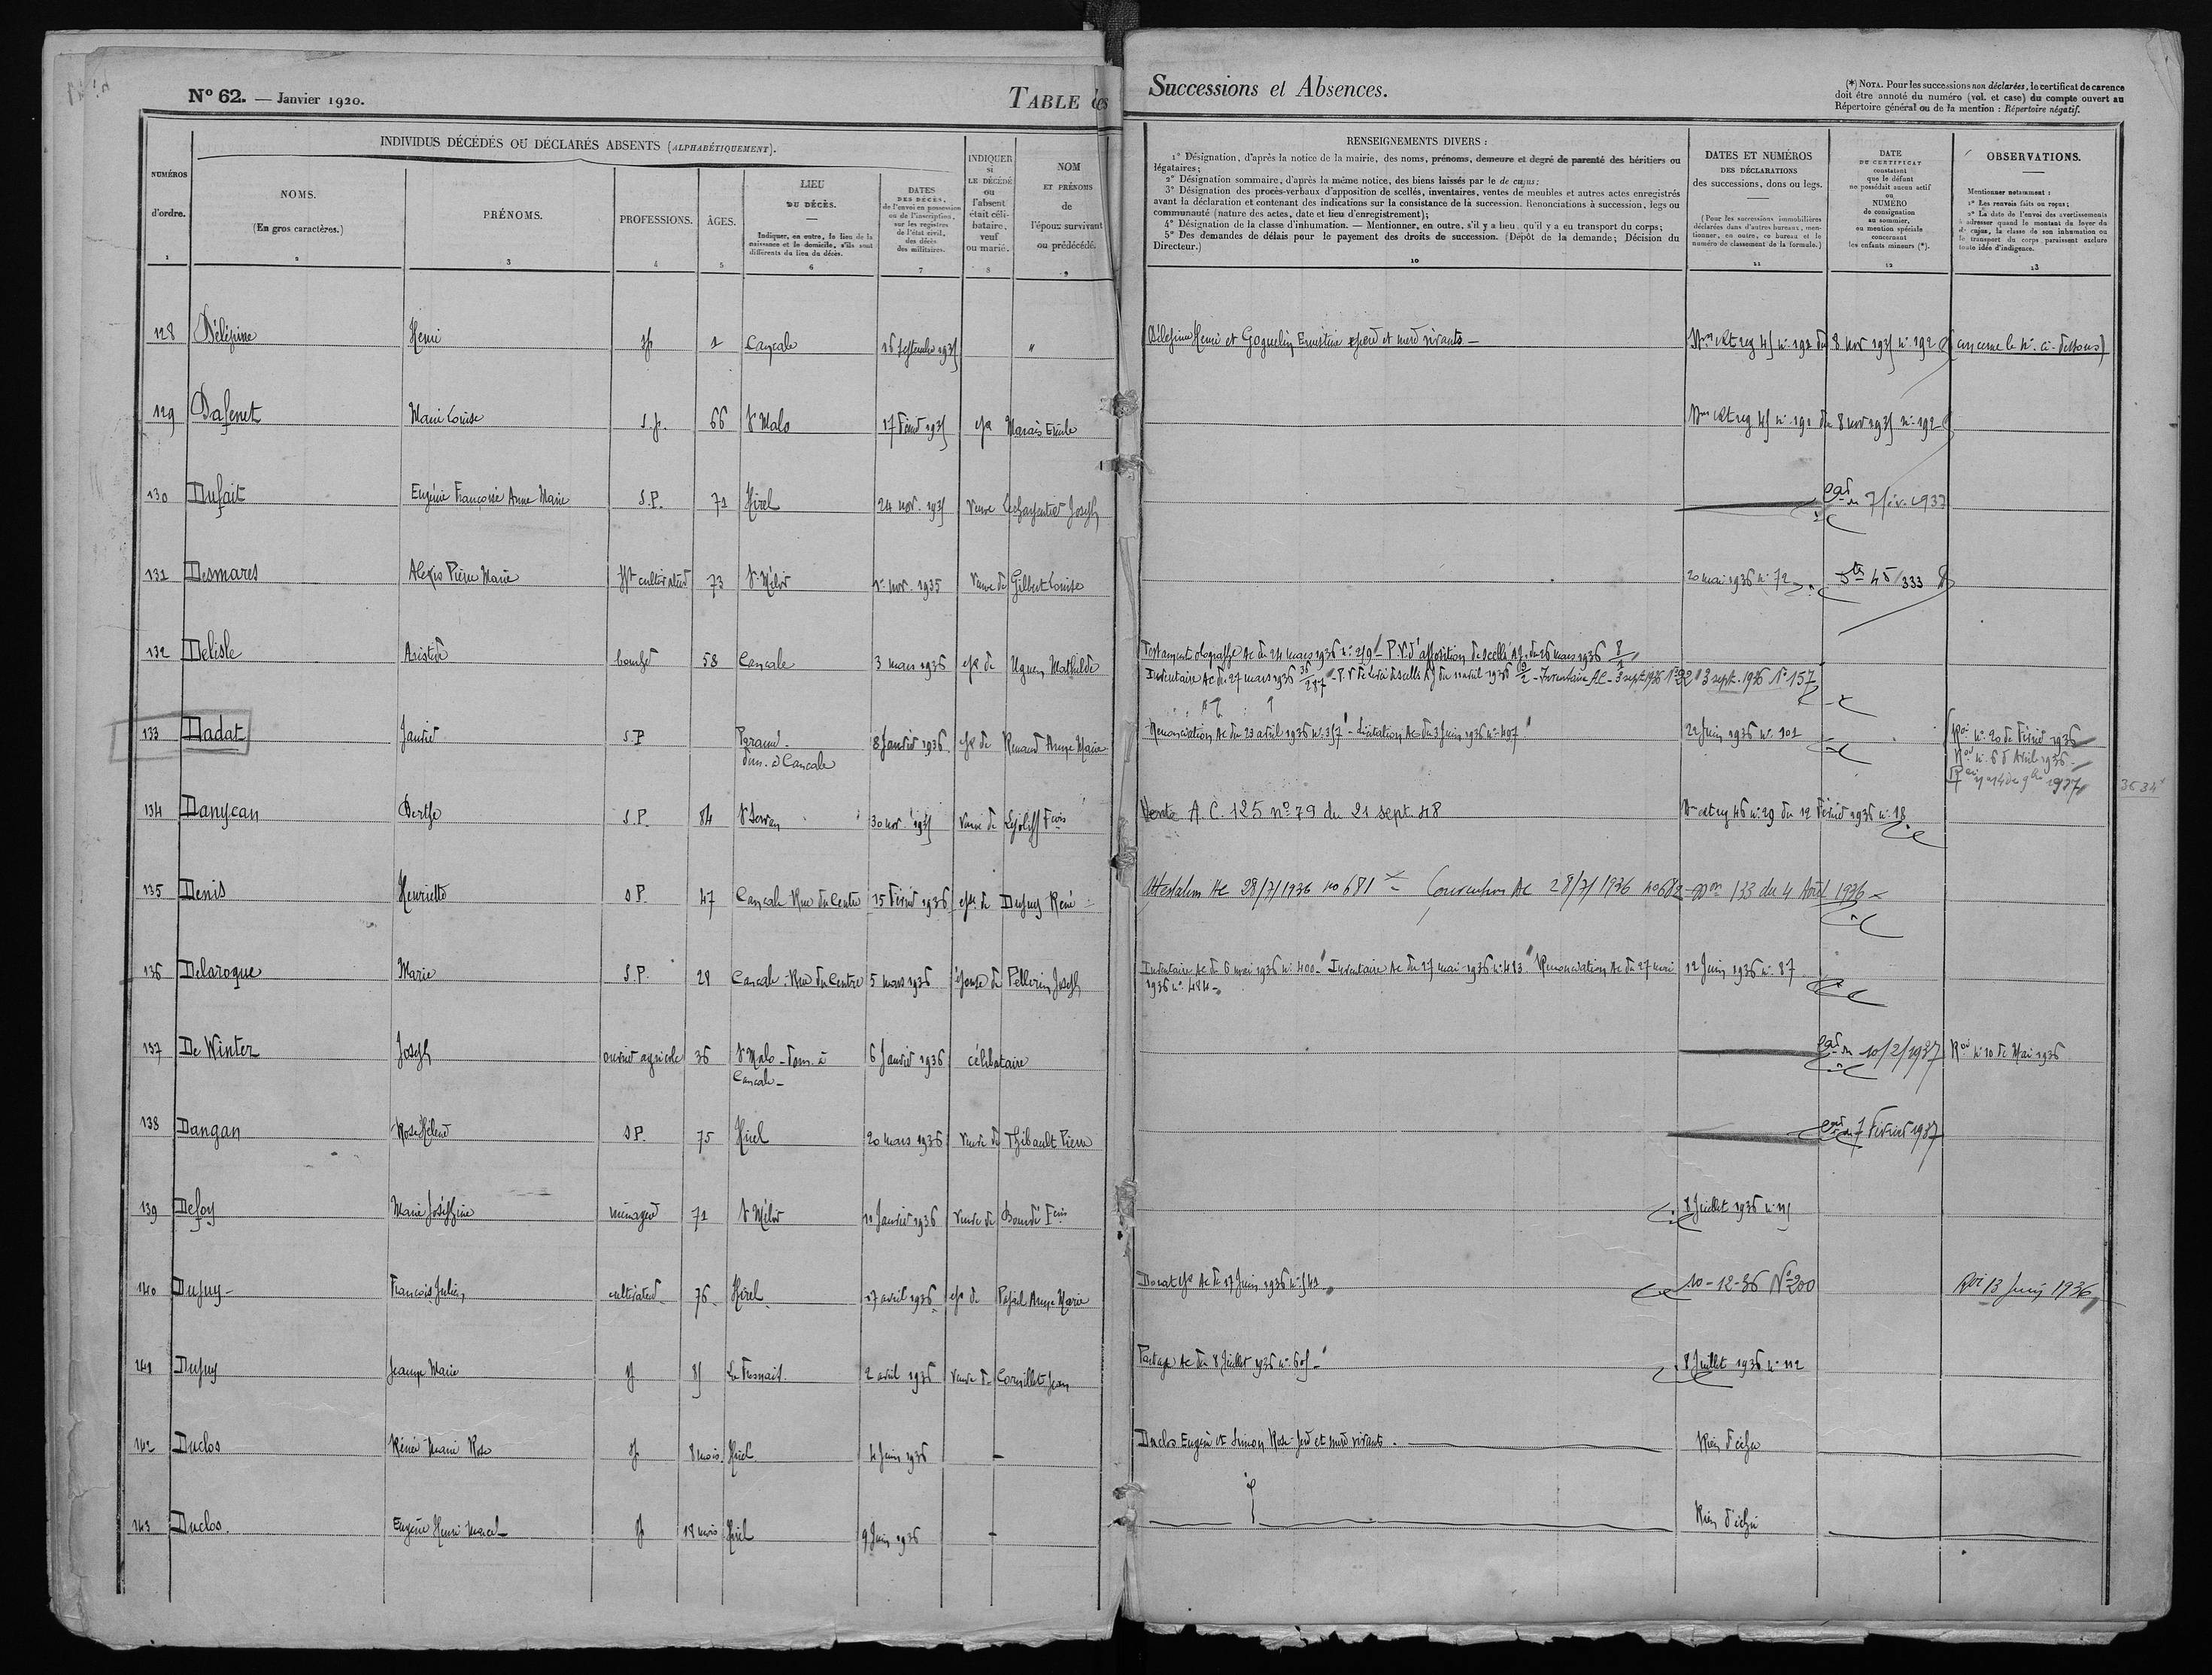 N° 62. — Janvier 1920.
TABLE des
Successions et Absences.
(*) NOTA. Pour les successions non déclarées, le certificat de carence
doit être annoté du numéro (vol. et case) du compte ouvert au
Répertoire général ou de la mention : Répertoire négatif.
INDIVIDUS DÉCÉDÉS OU DÉCLARÉS ABSENTS (ALPHABÉTIQUEMENT).
NUMÉROS
d'ordre.
1
NOMS.
(En gros caractères.)
2
PRÉNOMS.
3
PROFESSIONS.
4
ÂGES.
5
LIEU
DU DÉCÈS.
—
Indiquer, en outre, le lieu de la
naissance et le domicile, s'ils sont
différents du lieu du décès.
6
DATES
DES DÉCÈS,
de l'envoi en possession
ou de l'inscription,
sur les registres
de l'état civil,
des décès
des militaires.
7
INDIQUER
SI
LE DÉCÉDÉ
ou
l'absent
était céli-
bataire,
veuf
ou marié.
8
NOM
ET PRÉNOMS
de
l'époux survivant
ou prédécédé.
9
RENSEIGNEMENTS DIVERS :
1° Désignation, d'après la notice de la mairie, des noms, prénoms, demeure et degré de parenté des héritiers ou
légataires;
2° Désignation sommaire, d'après la même notice, des biens laissés par le de cujus;
3° Désignation des procès-verbaux d'apposition de scellés, inventaires, ventes de meubles et autres actes enregistrés
avant la déclaration et contenant des indications sur la consistance de la succession. Renonciations à succession, legs ou
communauté (nature des actes, date et lieu d'enregistrement);
4° Désignation de la classe d'inhumation. — Mentionner, en outre, s'il y a lieu, qu'il y a eu transport du corps;
5° Des demandes de délais pour le payement des droits de succession. (Dépôt de la demande; Décision du
Directeur.)
10
DATES ET NUMÉROS
DES DÉCLARATIONS
des successions, dons ou legs.
—
(Pour les successions immobilières
déclarées dans d'autres bureaux, men-
tionner, en outre, ce bureau et le
numéro de classement de la formule.)
11
DATE
DU CERTIFICAT
constatant
que le défunt
ne possédait aucun actif
ou
NUMÉRO
de consignation
au sommier,
ou mention spéciale
concernant
les enfants mineurs (*).
12
OBSERVATIONS.
Mentionner notamment :
1° Les renvois faits ou reçus;
2° La date de l'envoi des avertissements
à adresser quand le montant du loyer du
de cujus, la classe de son inhumation ou
le transport du corps paraissent exclure
toute idée d'indigence.
13
128 Délépine Henri sp 1 Cancale 16 septembre 1935 "
Délépine Henri et Goguelin Ernestine père et mère vivants — 8 nov 1935 n° 192 (concerne le n° ci-dessous)
129 Dafenet Marie Louise s.p. 66 St Malo 17 Févr 1935 épse Marais Emile
8 nov 1935 n° 192
130 Dufait Eugénie Françoise Anne Marie S.P. 71 Hirel 24 nov. 1935 Veuve Lecharpentier Joseph
du 7 fév. 1937
131 Desmares Alexis Pierre Marie cultivateur 73 St Méloir nov. 1935 Veuf de Gilbert Louise
20 mai 1936 n° 72 45/333
132 Delisle Aristide 58 Cancale 3 mars 1936 épx de Ugnen Mathilde
Testament olographe Ac du 24 mars 1936 n° 279 — P.V. d'apposition de scellés AJ. du 26 mars 1936
Inventaire Ac du 27 mars 1936 — P.V. de levée de scellés AJ du 11 avril 1936 — Inventaire AC — 3 sept. 1936 3 sept. 1936 N° 157
133 Dadat Janvier S P Paramé — dom. à Cancale 8 Janvier 1936 épx de Renaud Anne Marie
Renonciation Ac du 23 avril 1936 n° 357 — Licitation Ac du 3 Juin 1936 n° 497 22 Juin 1936 n° 101 n° 20 de Février 1936
n° 6 d'Avril 1936
1937
134 Danycan Berthe S.P. 84 St Servan 30 nov. 1935 Veuve de Fçois
Vente A.C. 125 n° 79 du 21 sept. 48 46 n° 29 du 12 Février 1936 n° 18
135 Denis Henriette S P. 47 Cancale Rue du Centre 15 Février 1936 épse de Dupuy René
Attestation Ac 28/7/1936 no 681 — Convention Ac 28/7/1936 no 682 — 133 du 4 Août 1936
136 Delaroque Marie S.P. 28 Cancale. Rue du Centre 5 mars 1936 épouse de Pellerin Joseph
Inventaire Ac du 6 mai 1936 n° 400 — Inventaire Ac du 27 mai 1936 n° 483 Renonciation Ac du 27 mai 12 Juin 1936 n° 87
1936 n° 484
137 De Winter Joseph ouvrier agricole 36 St Malo — dom. à Cancale — 6 Janvier 1936 célibataire
du 10/2/1937 n° 10 de Mai 1936
138 Dangan Rose Hélène S P. 75 Hirel 20 mars 1936 Veuve de Thébault Pierre
du 7 Février 1937
139 Defoy Marie Joséphine ménagère 71 St Méloir 11 Janvier 1936 Veuve de Bourdé Fçois
8 Juillet 1936 n° 111
140 Dupuy — François Julien cultivateur 76 Hirel 17 avril 1936 épx de Anne Marie
Donat. Ac du 17 Juin 1936 n° 541 10-12-36 N° 200 13 Juin 1936
141 Dupuy Jeanne Marie sp 85 La Fresnais 2 avril 1936 Veuve de Cornillet Jean
Partage Ac du 8 Juillet 1936 n° 605 — 8 Juillet 1936 n° 112
142 Duclos Renée Marie Rose sp 8 mois Hirel 4 Juin 1936 —
Duclos Eugène et Simon Rose père et mère vivants. Rien d'échu
143 Duclos. Eugène Henri Marcel sp 18 mois Hirel 9 Juin 1936 —
Rien d'échu